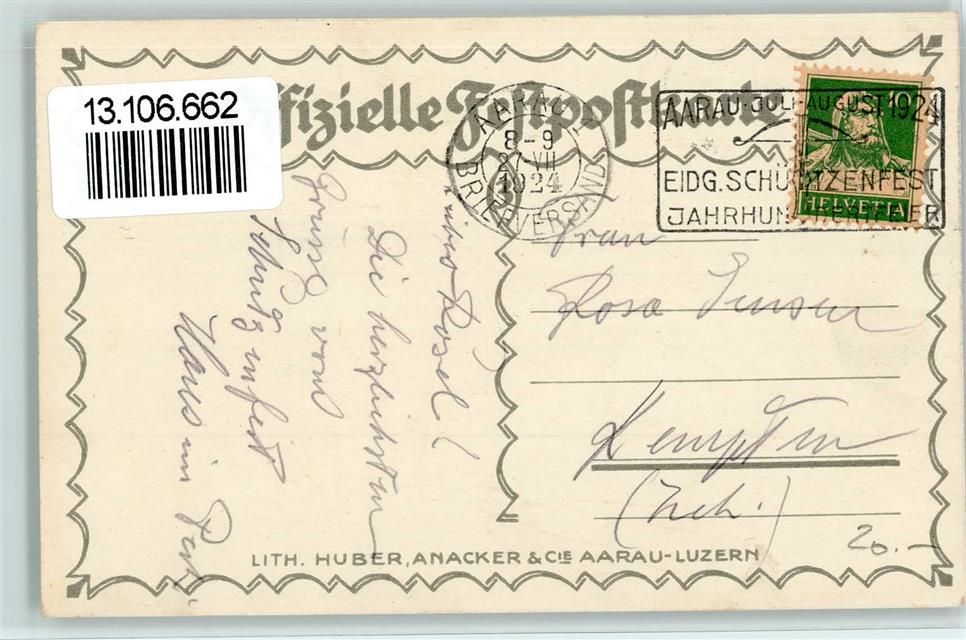 13.106.662
Offizielle Festpostkarte
AARAU 1
8-9
27.VII
1924
BRIEFVERSAND
AARAU·JULI-AUGUST 1924
EIDG. SCHÜTZENFEST
JAHRHUNDERTFEIER
10
HELVETIA
Liebes Rösel!
Die herzlichsten
Grüsse vom
Schützenfest
Hans und
Frau
Rosa
Kempten
(Zch.)
20.-
LITH. HUBER, ANACKER & CIE AARAU-LUZERN